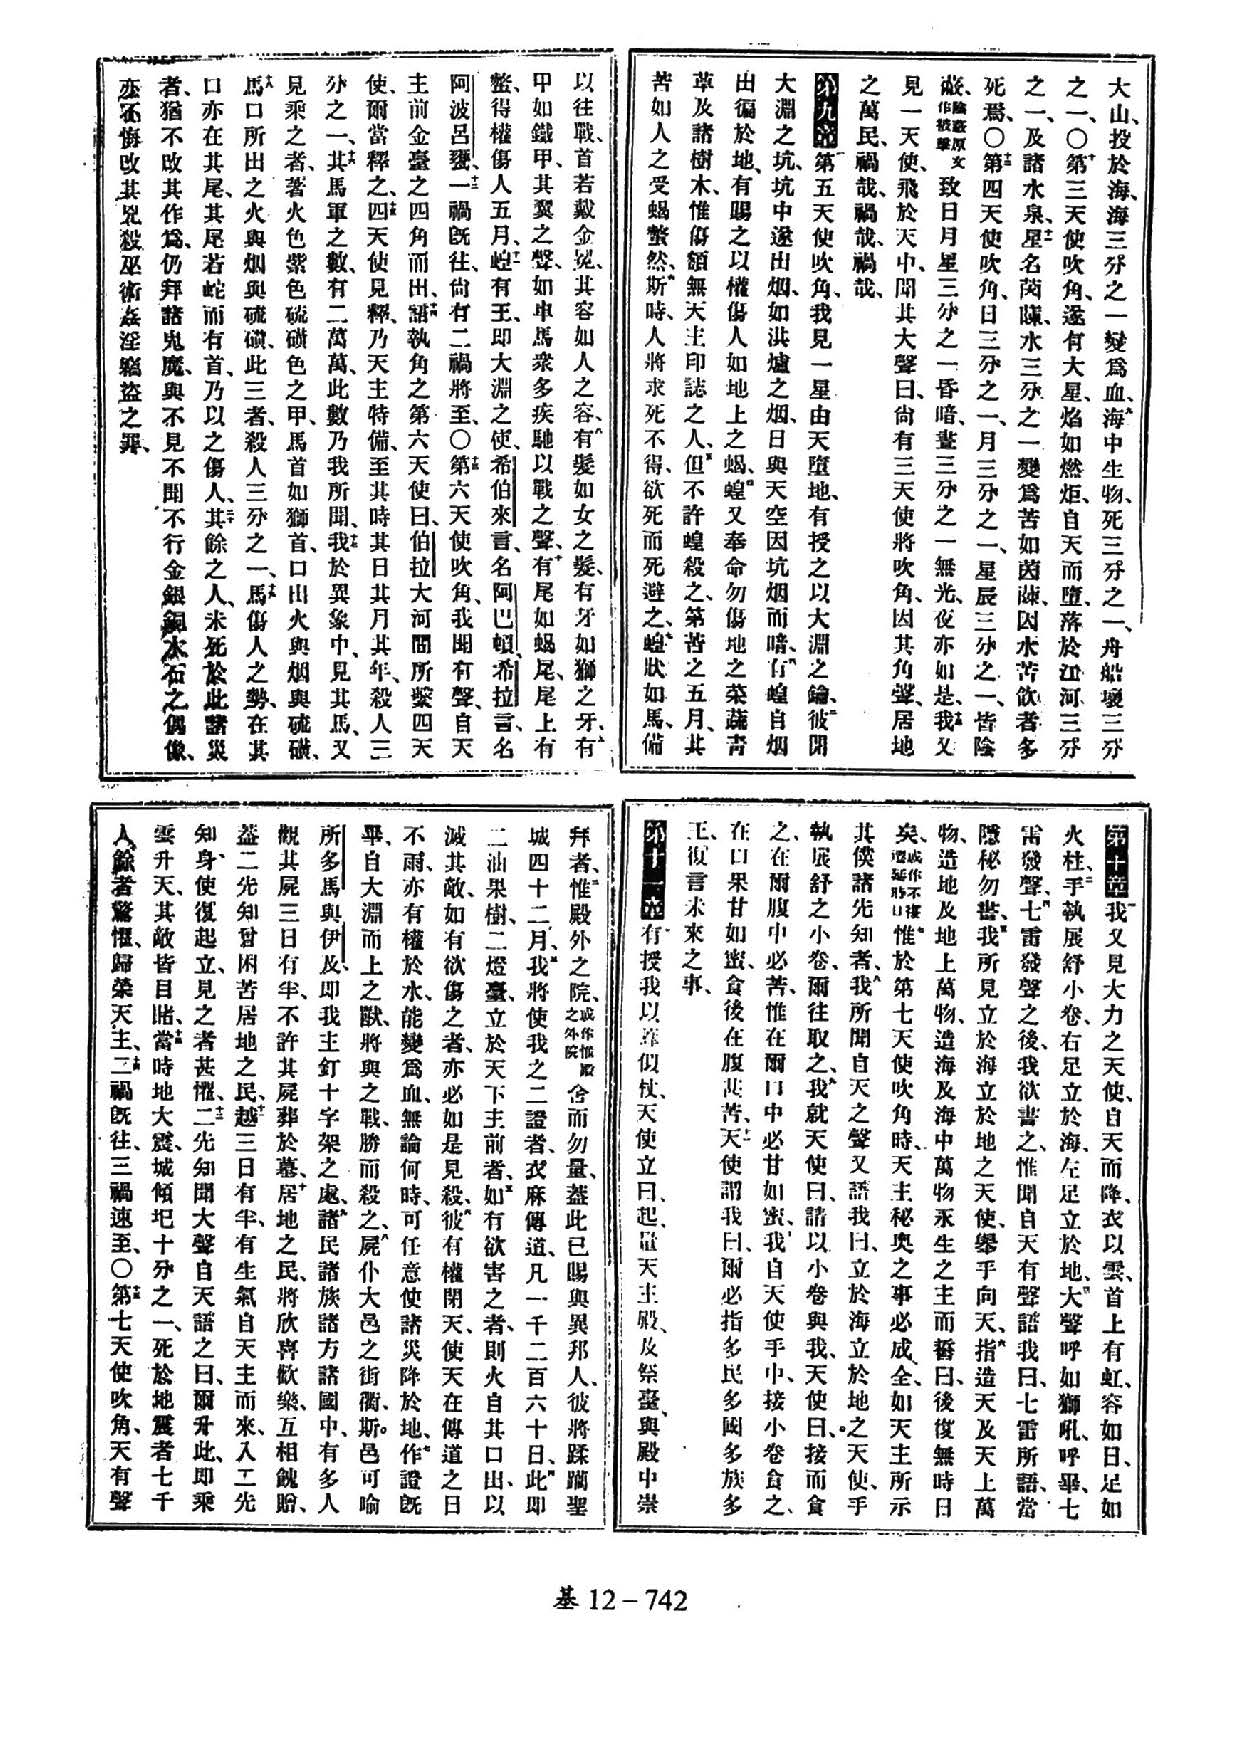 大山投於海、海三分之一變爲血、海中生物、死三分之一、舟船壞三分
之一、〇第三天使吹角、遂有大星、焰如燃炬、自天而墮、落於江河三分
之一、及諸水泉、星名茵蔯、水三分之一變爲苦如茵蔯、因水苦飲者多
死焉、〇第四天使吹角、日三分之一、月三分之一、星辰三分之一、皆陰
蔽、陰蔽原文作被擊致日月星三分之一昏暗、晝三分之一無光、夜亦如是、我又
見一天使、飛於天中、聞其大聲曰、尙有三天使將吹角、因其角聲、居地
之萬民、禍哉、禍哉、禍哉、
第九章第五天使吹角、我見一星由天墮地、有授之以大淵之鑰、彼開
大淵之坑、坑中遂出烟、如洪爐之烟、日與天空因坑烟而暗、有蝗自烟
出徧於地、有賜之以權傷人如地上之蝎、蝗又奉命勿傷地之菜蔬靑
草及諸樹木、惟傷額無天主印誌之人、但不許蝗殺之、第苦之五月、其
苦如人之受蝎螫然、斯時、人將求死不得、欲死而死避之、蝗狀如馬、備
以往戰、首若戴金冕、其容如人之容、有髮如女之髮、有牙如獅之牙、有
甲如鐵甲、其翼之聲、如車馬衆多疾馳以戰之聲、有尾如蝎尾、尾上有
螫、得權傷人五月、蝗有王、卽大淵之使、希伯來言、名阿巴頓、希拉言、名
阿波呂甕、一禍旣往、尙有二禍將至、〇第六天使吹角、我聞有聲、自天
主前金臺之四角而出、語執角之第六天使曰、伯拉大河間所繫四天
使、爾當釋之、四天使見釋、乃天主特備、至其時其日其月其年、殺人三
分之一、其馬軍之數、有二萬萬、此數乃我所聞、我於異象中、見其馬、又
見乘之者、著火色紫色硫磺色之甲、馬首如獅首、口出火與烟與硫磺、
馬口所出之火與烟與硫磺、此三者、殺人三分之一、馬傷人之勢、在其
口亦在其尾、其尾若蛇而有首、乃以之傷人、其餘之人、未死於此諸災
者、猶不改其作爲、仍拜諸鬼魔、與不見不聞不行金銀銅木石之偶像、
亦不悔改其兇殺巫術姦淫竊盜之罪、
第十章我又見大力之天使、自天而降、衣以雲、首上有虹、容如日、足如
火柱、手執展舒小卷、右足立於海、左足立於地、大聲呼如獅吼、呼畢、七
雷發聲、七雷發聲之後、我欲書之、惟聞自天有聲語我曰、七雷所語、當
隱秘勿書、我所見立於海立於地之天使、舉手向天、指造天及天上萬
物、造地及地上萬物、造海及海中萬物永生之主而誓曰、後復無時日
矣、或作不復遲延時日惟於第七天使吹角時、天主秘奧之事必成全、如天主所示
其僕諸先知者、我所聞自天之聲又語我曰、立於海立於地之天使、手
執展舒之小卷、爾往取之、我就天使曰、請以小卷與我、天使曰、接而食
之、在爾腹中必苦、惟在爾口中必甘如蜜、我自天使手中、接小卷食之、
在口果甘如蜜、食後在腹甚苦、天使謂我曰、爾必指多民多國多族多
王、復言未來之事、
第十一章有授我以葦似杖、天使立曰、起、量天主殿、及祭臺、與殿中崇
拜者、惟殿外之院、或作惟殿之外院舍而勿量、蓋此已賜與異邦人、彼將蹂躪聖
城四十二月、我將使我之二證者、衣麻傳道、凡一千二百六十日、此卽
二油果樹、二燈臺、立於天下主前者、如有欲害之者、則火自其口出、以
滅其敵、如有欲傷之者、亦必如是見殺、彼有權閉天、使天在傳道之日
不雨、亦有權於水、能變爲血、無論何時、可任意使諸災降於地、作證旣
畢、自大淵而上之獸、將與之戰、勝而殺之、屍仆大邑之街衢、斯邑可喻
所多馬與伊及、卽我主釘十字架之處、諸民諸族諸方諸國中、有多人
觀其屍三日有半、不許其屍葬於墓、居地之民、將欣喜歡樂、互相餽贈、
蓋二先知曾困苦居地之民、越三日有半、有生氣自天主而來、入二先
知身、使復起立、見之者甚懼、二先知聞大聲自天語之曰、爾升此、卽乘
雲升天、其敵皆目睹、當時地大震、城傾圮十分之一、死於地震者七千
人、餘者驚懼、歸榮天主、二禍旣往、三禍速至、〇第七天使吹角、天有聲
基 12－742